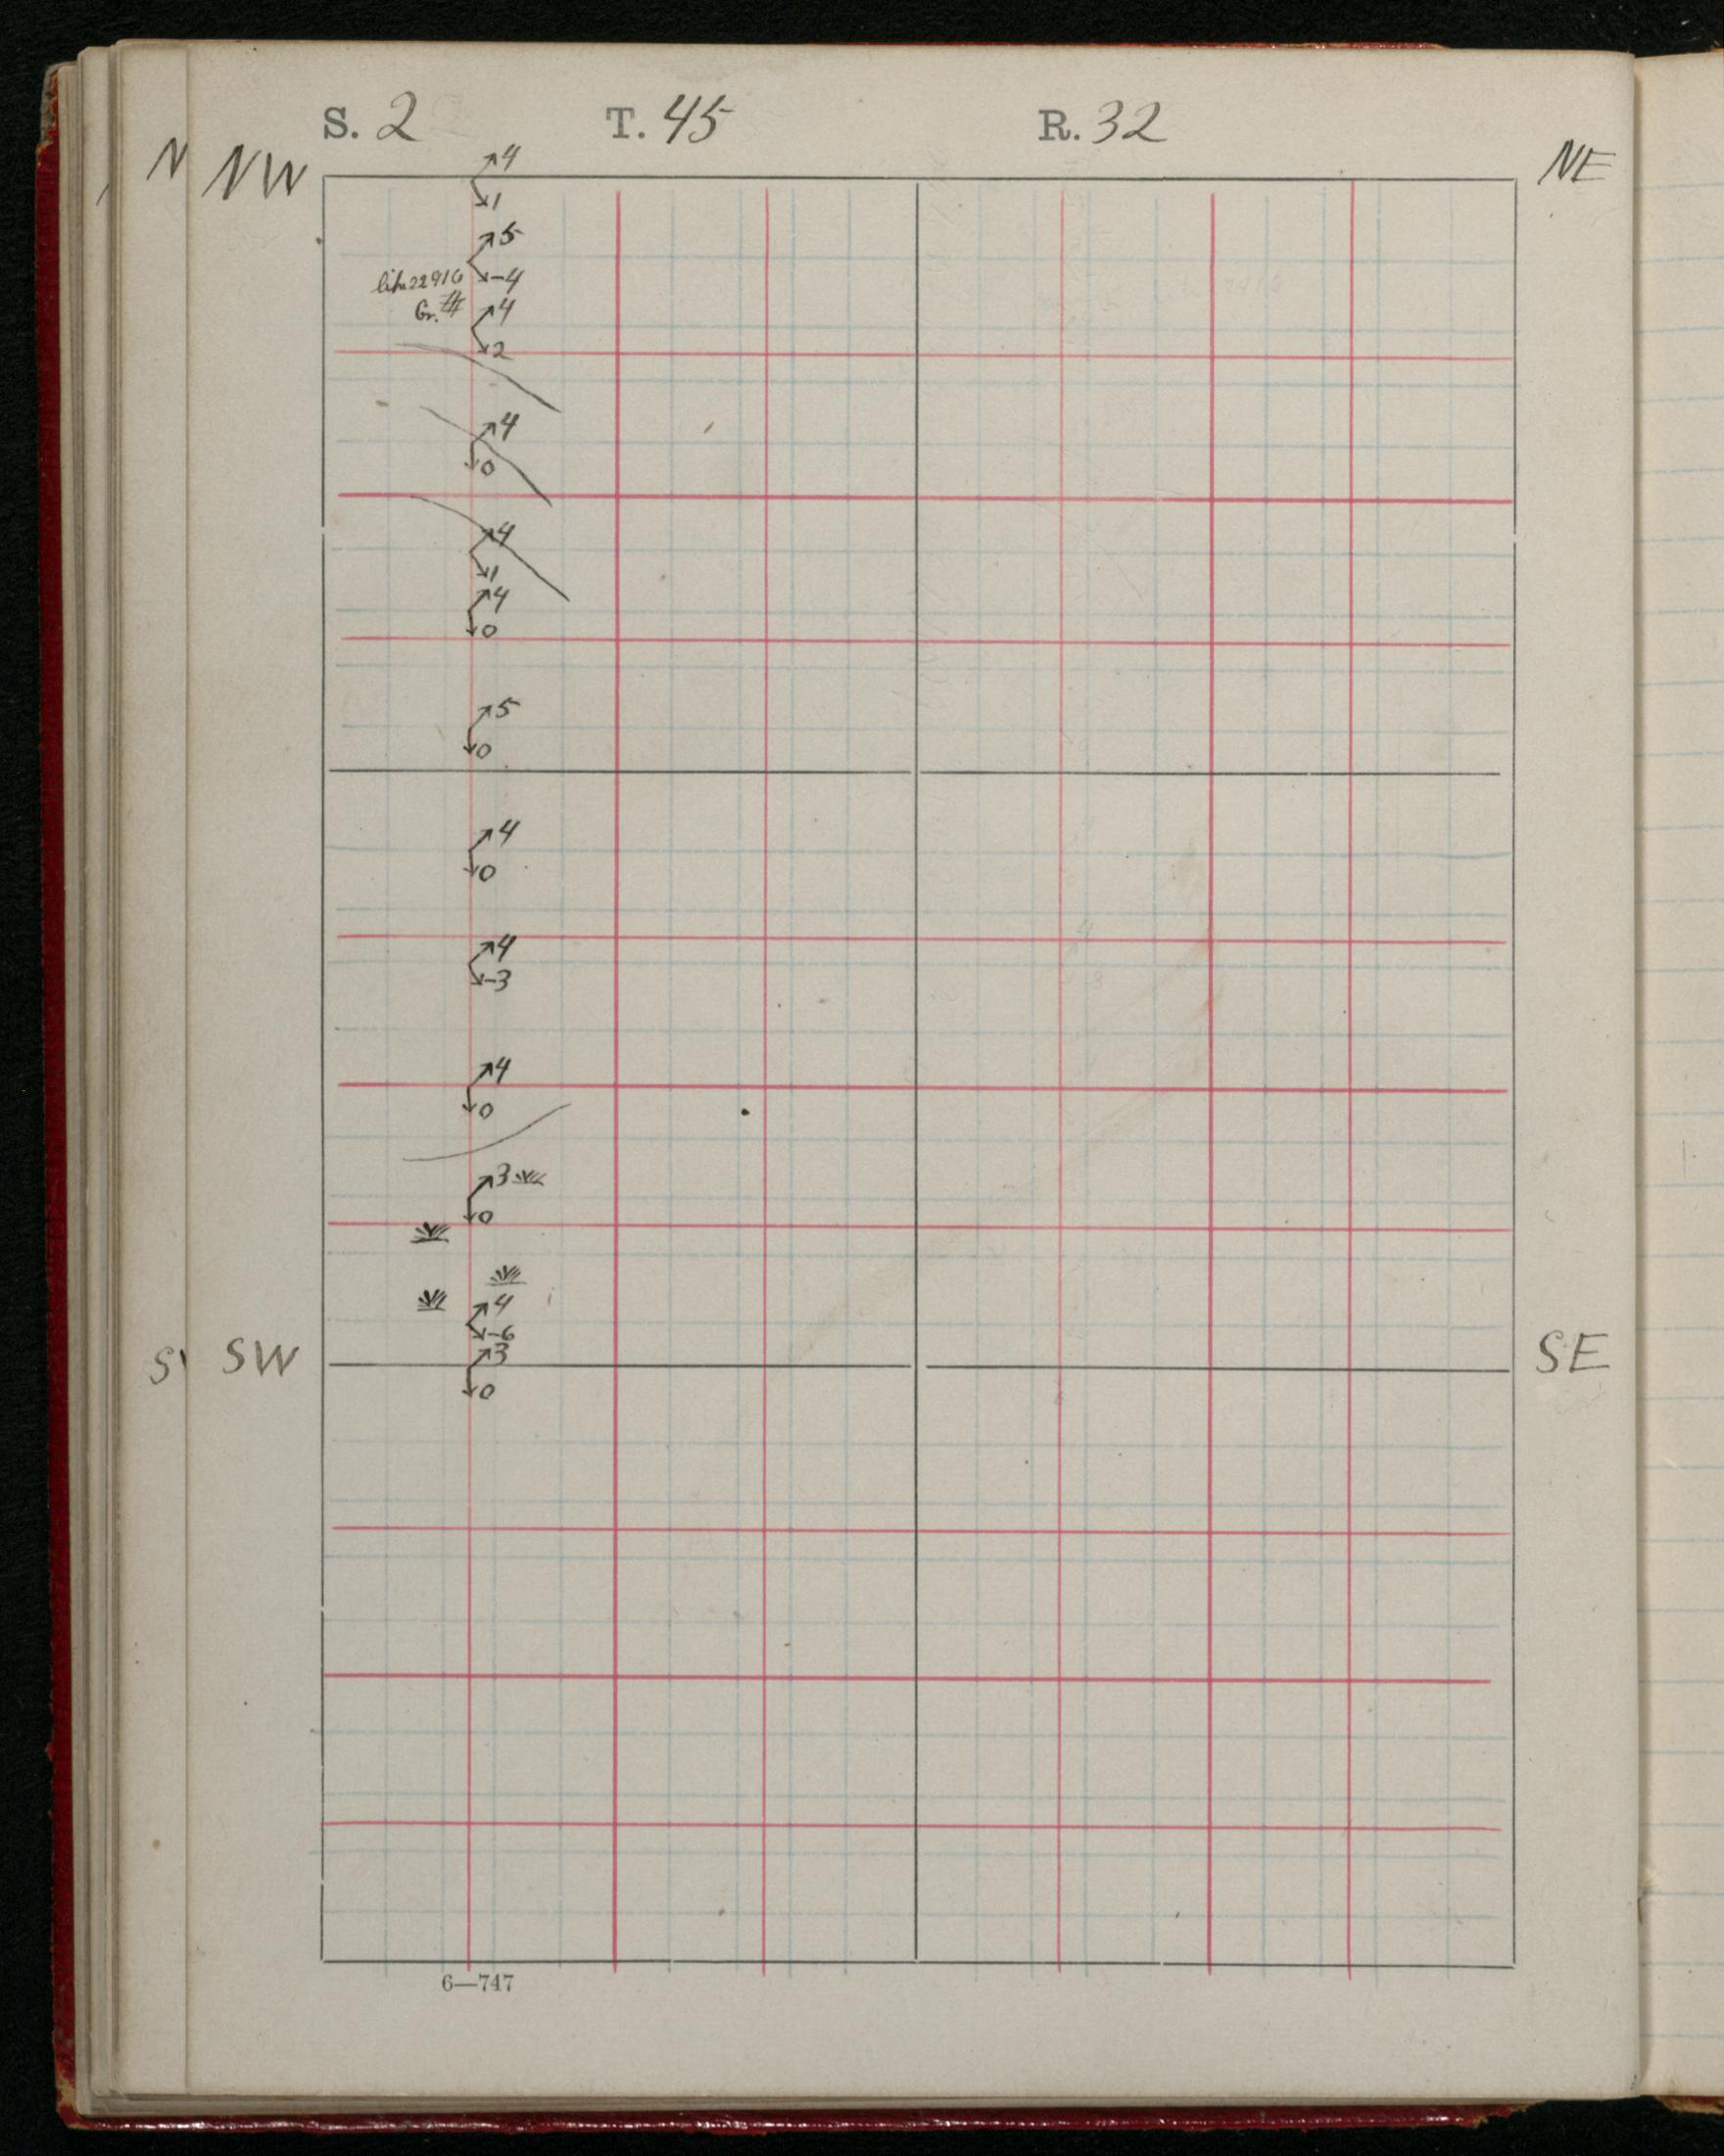 S. 2 T. 45 R. 32
N NW NE
4
1
5
like 22916 -4
Gr. # 4
2
4
0
4
1
4
0
5
0
4
0
4
-3
4
0
3
0
4
-6
S SW 3 SE
0
6—747